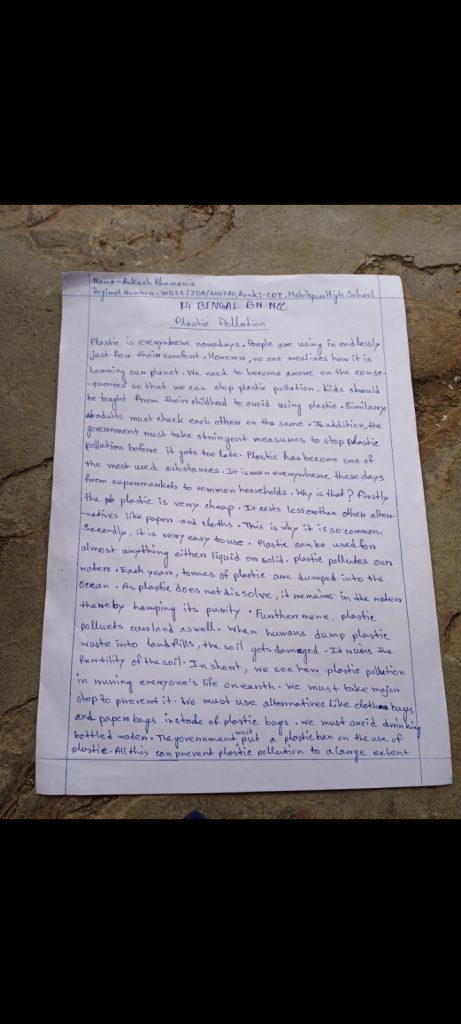 Name - Ankush Khamaria
Regimet Number - WB23/JDA/ Rank:- CDT, Habibpur High School
14 BENGAL BN NCC
Plastic Pollution
Plastic is everywhere nowadays. People are using in endlessly
just for their comfort. However, no one wealizes how it is
harming our planet. We need to become aware on the conse-
quences so that we can stop plastic pollution. Kids should
be taught from their childhood to avoid using plastic. Similary
adults must check each other on the same. In addition, the
government must take stringent measures to stop plastic
pollution before it gets too late. Plastic has become one of
the most used substances. It is seen everywhere these days
from supermarkets to common households. Why is that? firstly
the plastic is very cheap. It costs lesser than other alter-
natives like paper and cloths. This is why it is so common.
Secondly, it is very easy to use. Plastic can be used for
almost anything either liquid or solid. plastic polludes our
waters. Each year, tonnes of plastic are dumped into the
Ocean. As plastic does not dissolve, it remains in the water
thereby hamping its purity. Furthermore, plastic
polluets our land as well. When humans dump plastic
waste into landfills, the soil gets damaged. It ruins the
fertility of the soil. In short, we see how plastic pollution
in runing everyone's life on earth. We must take major
step to prevent it. We must use alternatives like cloth bags
and paper bags instade of plastic bags. We must avoid drinking
bottled water. The government must put a plastic ban on the use of
plastic. All this can prevent plastic pollution to a large extent